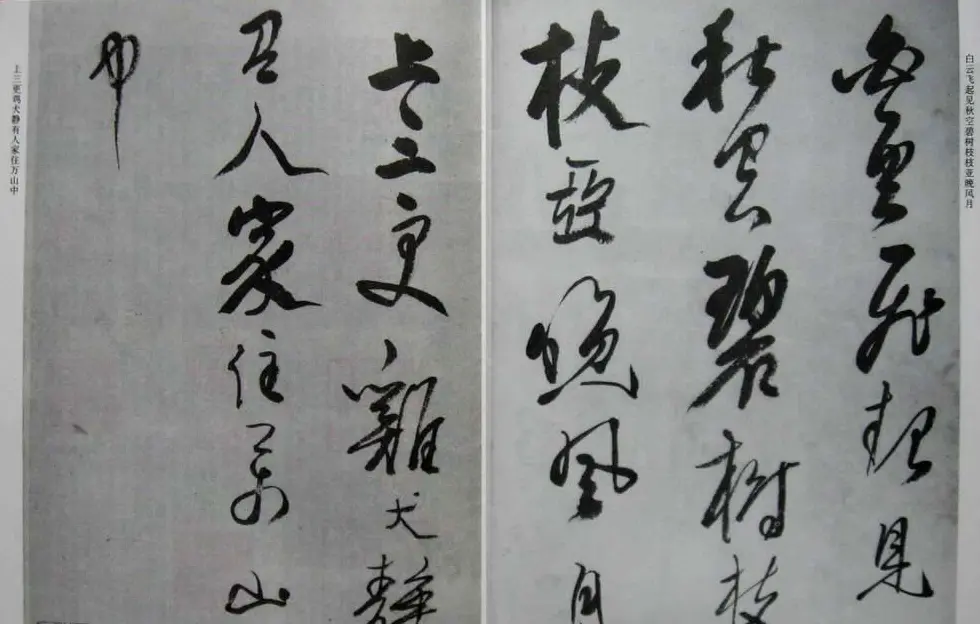 白云飞起见秋空碧树枝枝亚晚风月
白雲飛起見
秋空碧樹枝
枝亞晚風月
上三更雞犬靜
有人家住萬山
中
上三更鸡犬静有人家住万山中